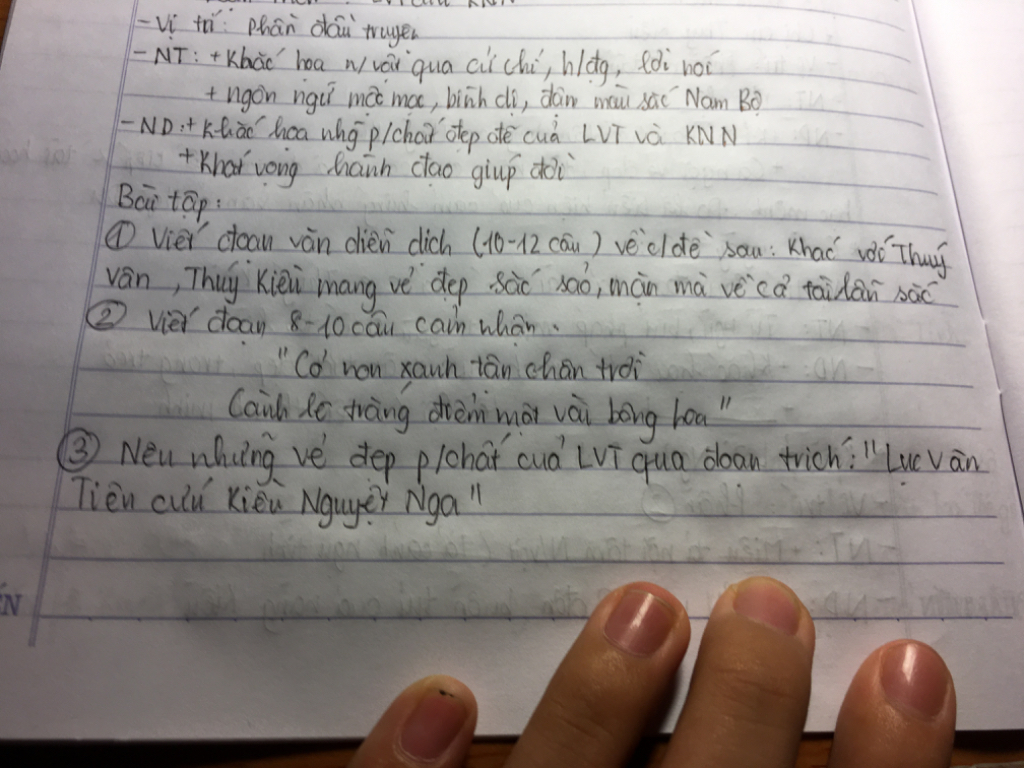 - Vị trí: phần đầu truyện
- NT: + Khắc họa n/vật qua cử chỉ, h/đg, lời nói
+ ngôn ngữ mộc mạc, bình dị, đậm màu sắc Nam Bộ
- ND: + Khắc họa nhg p/chất đẹp đẽ của LVT và KNN
+ Khát vọng hành đạo giúp đời
Bài tập:
① Viết đoạn văn diễn dịch (10-12 câu) về c/đề sau: Khác với Thúy
Vân, Thúy Kiều mang vẻ đẹp sắc sảo, mặn mà về cả tài lẫn sắc
② Viết đoạn 8-10 câu cảm nhận.
"Cỏ non xanh tận chân trời
Cành lê trắng điểm một vài bông hoa"
③ Nêu những vẻ đẹp p/chất của LVT qua đoạn trích: "Lục Vân
Tiên cứu Kiều Nguyệt Nga"